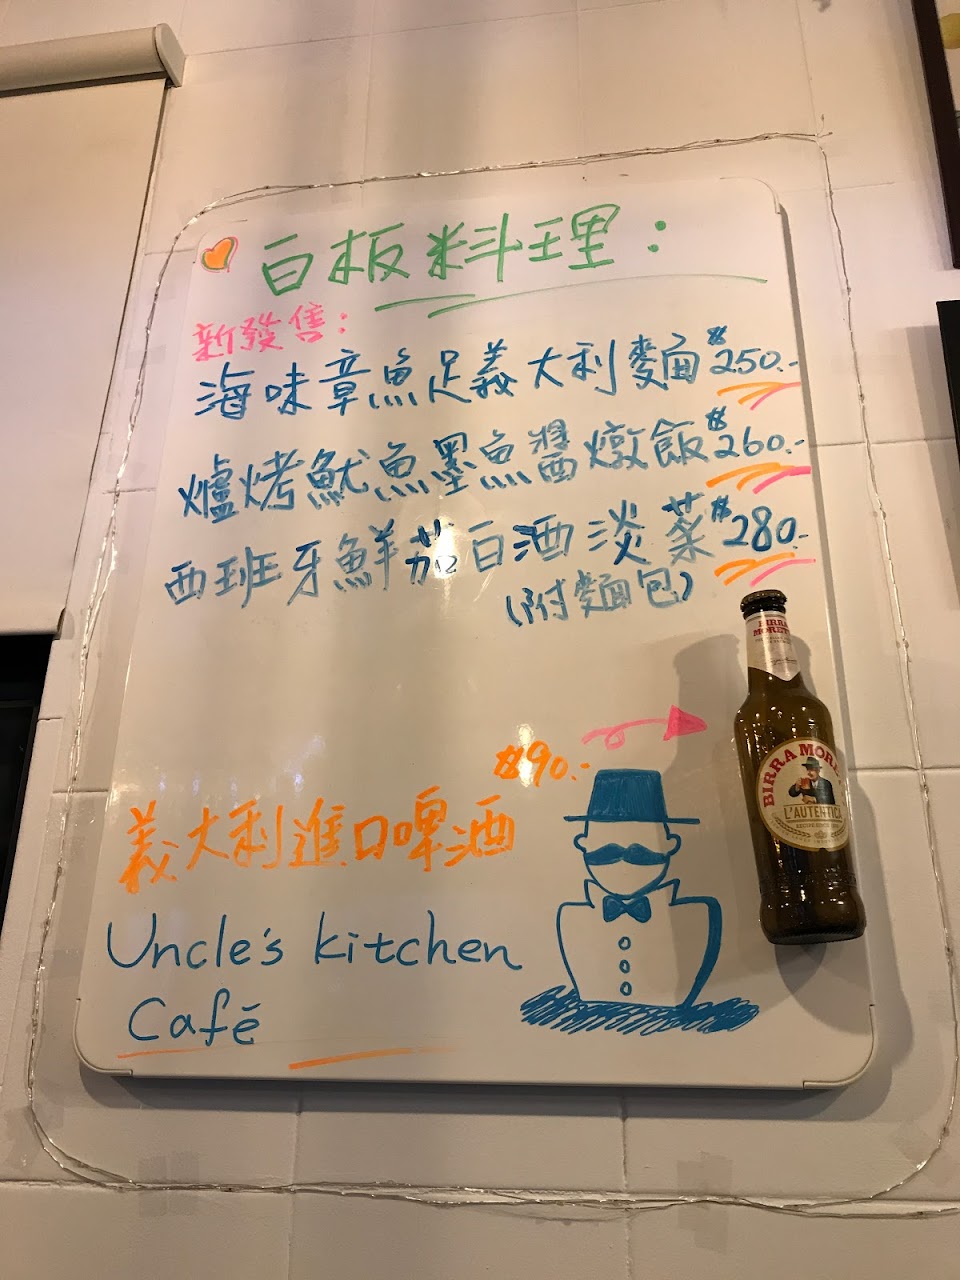 白板料理:
新發售:
海味章魚足義大利麵 $250.-
爐烤魷魚墨魚醬燉飯 $260.-
西班牙鮮茄白酒淡菜 $280.-
(附麵包)
BIRRA
MORETTI
$90.-
BIRRA MORETTI
L'AUTENTICA
義大利進口啤酒
Uncle's kitchen
Café